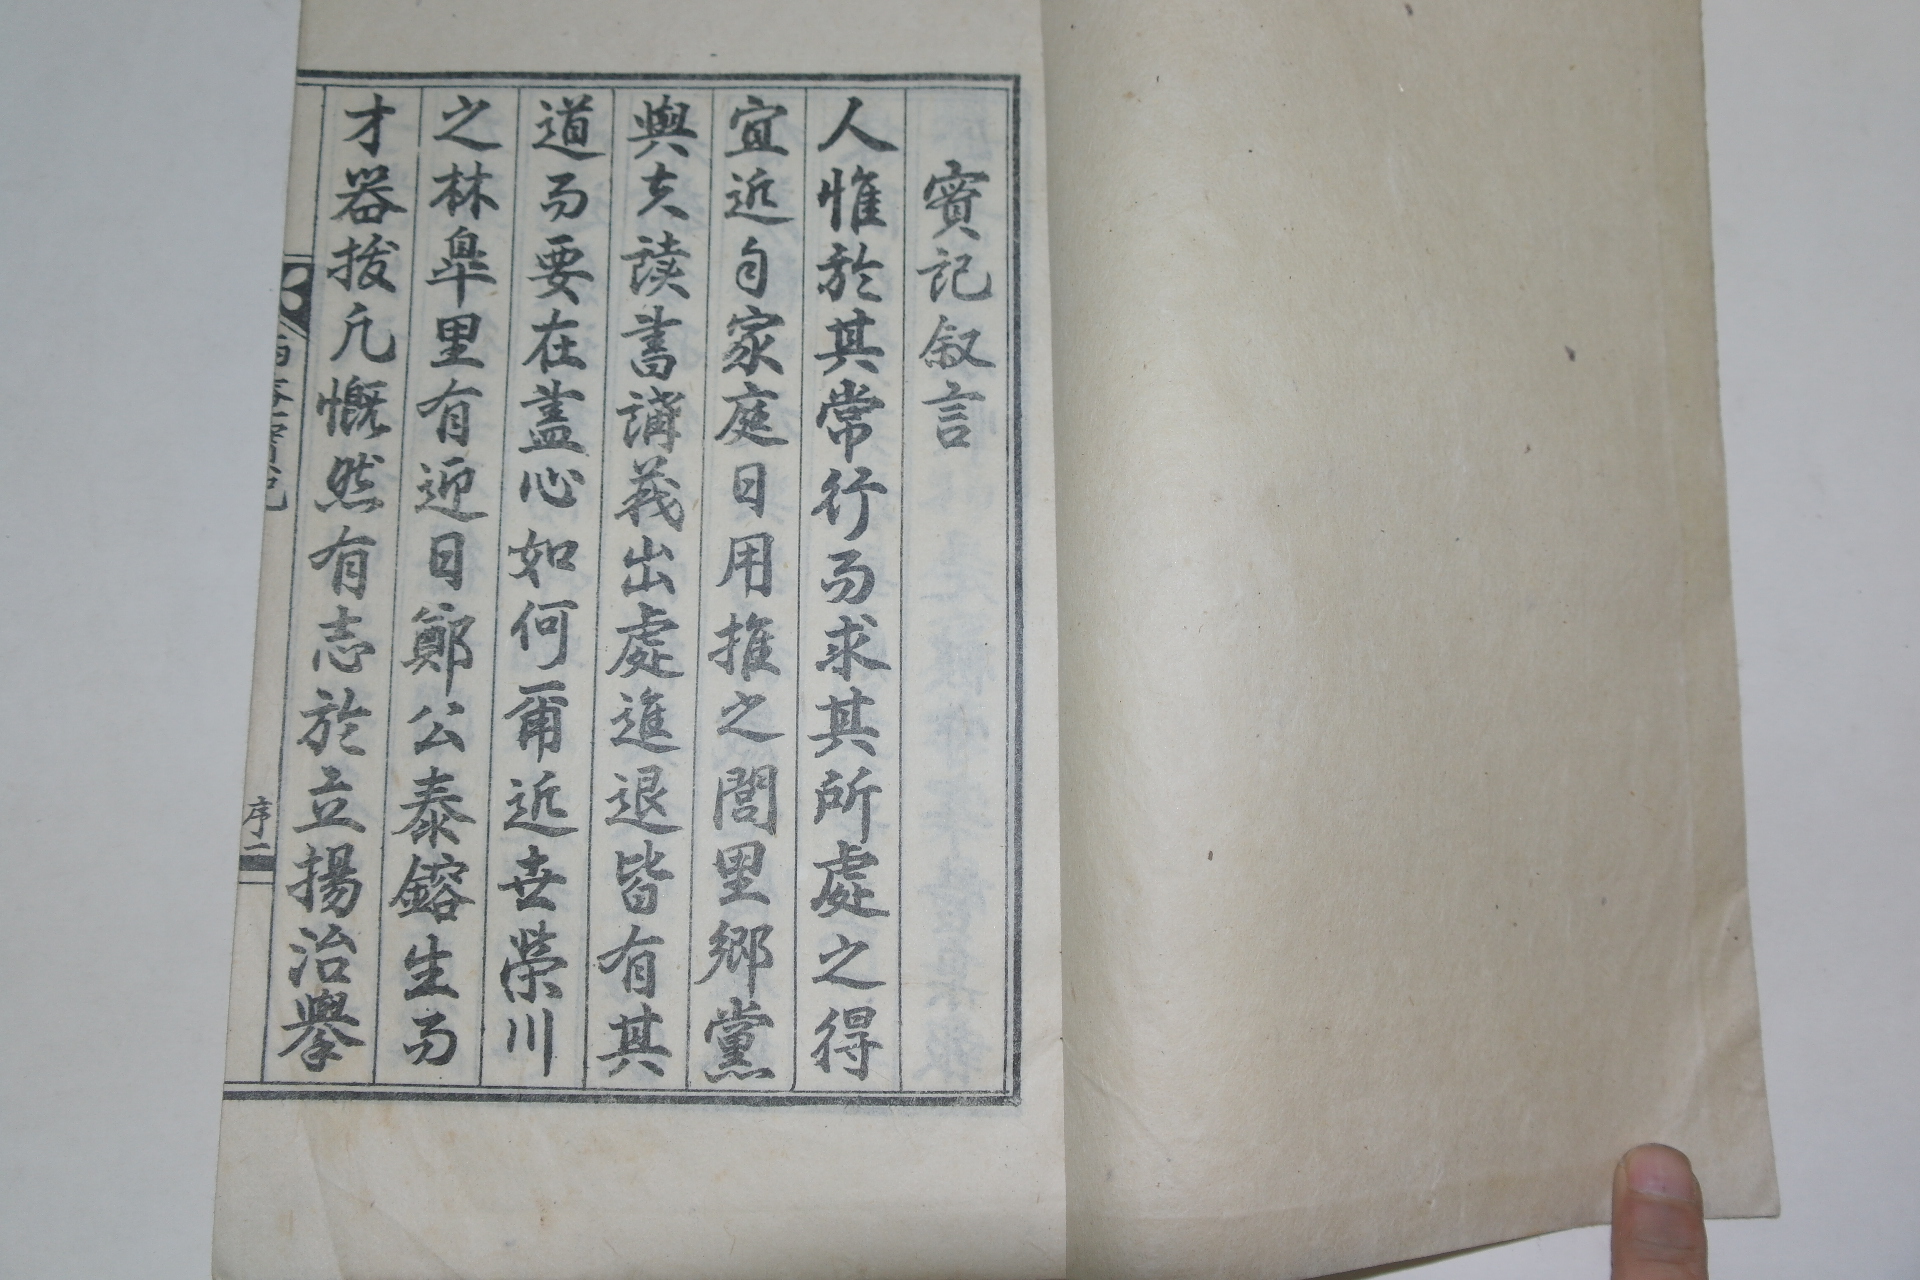 實記叙言
人惟於其常行而求其所處之得
宜近自家庭日用推之閭里鄉黨
與夫读書講義出處進退皆有其
道而要在盖心如何爾近世榮川
之林皐里有近日鄭公泰鎔生而
才器拔凡慨然有志於立揚治擧
實記
序二